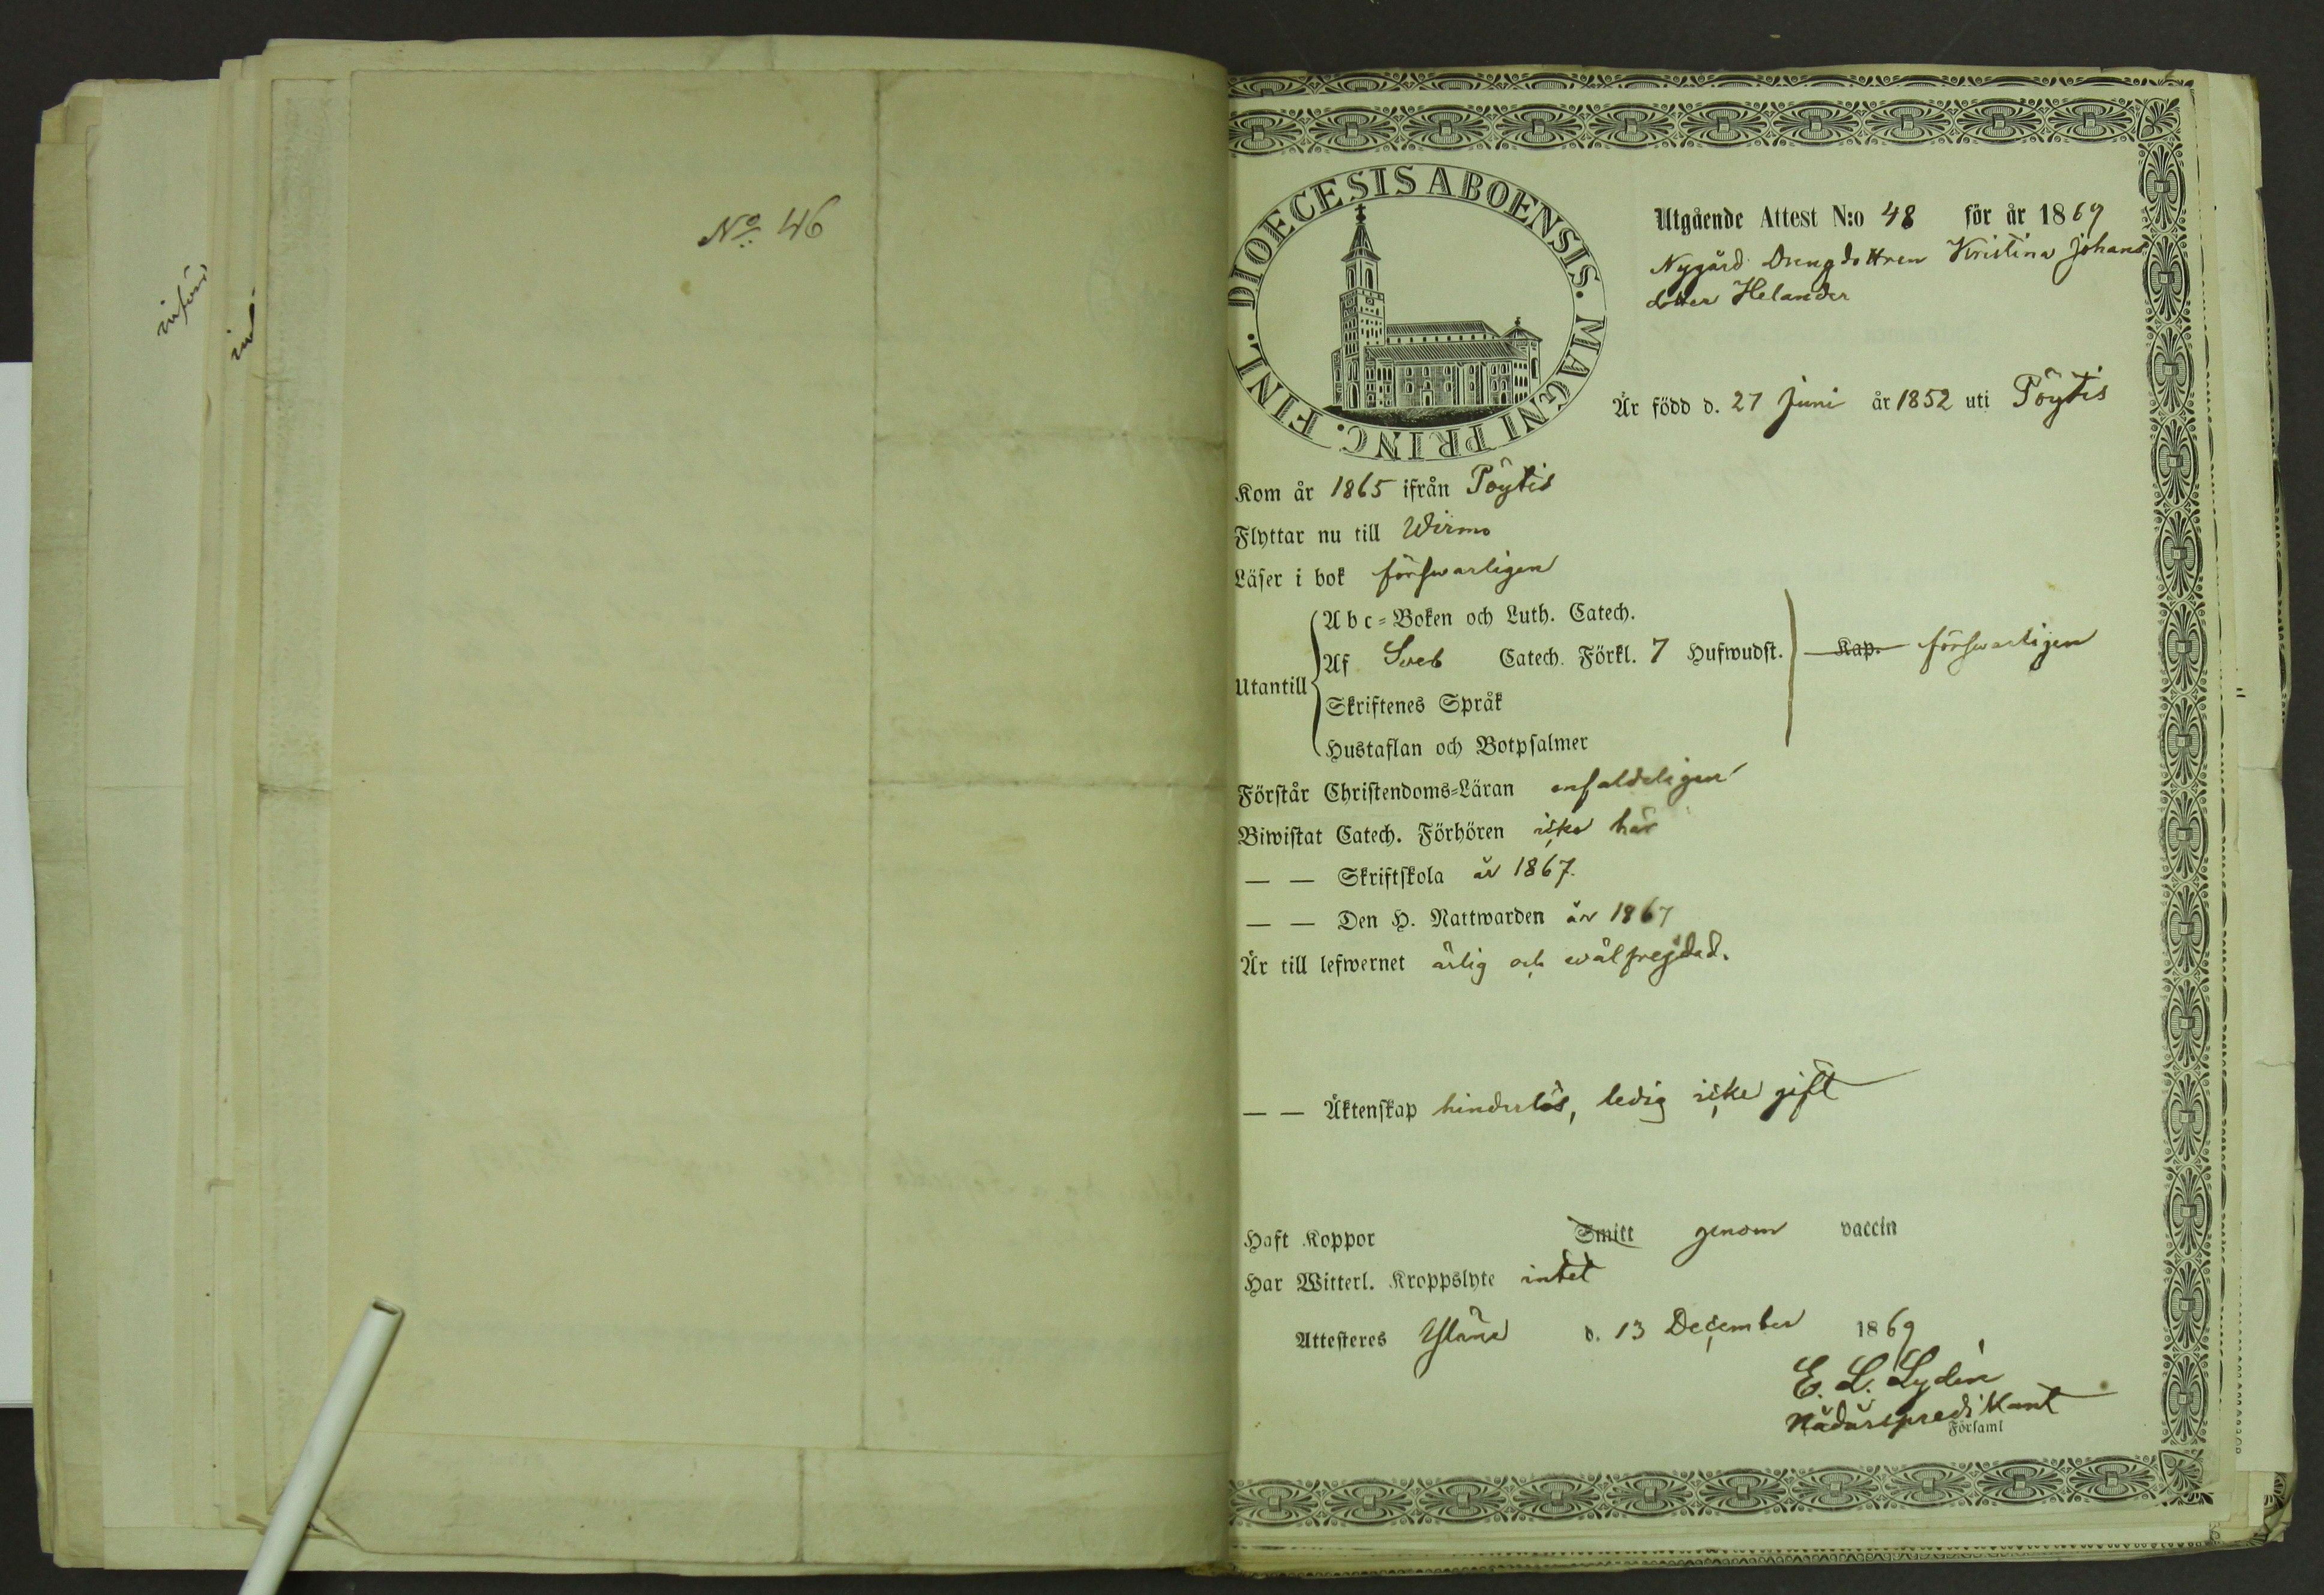 införd
in
No 46
DIOECESIS ABOENSIS. MAGNI PRINC. FINL.
Utgående Attest N:o 48 för år 1869
Nygård Drengdottren Kristina Johans
dotter Helander
Är född d. 27 Juni år 1852 uti Pöytis
Kom år 1865 ifrån Pöytis
Flyttar nu till Wirmo
Läser i bok förswarligen
Utantill
Abc-Boken och Luth. Catech.
Af Sveb Catech. Förkl. 7 Hufwudst. Kap. förswarligen
Skriftenes Språk
Hustaflan och Botpsalmer
Förstår Christendoms-Läran enfaldeligen
Biwistat Catech. Förhören icke här
— — Skriftskola år 1867.
— — Den H. Nattwarden år 1867
Är till lefwernet ärlig och wälfrejdad.
— — Äktenskap hinderlös, ledig icke gift
Haft Koppor Smitt genom vaccin
Har Witterl. Kroppslyte intet
Attesteres Yläne d. 13 December 1869
E. L. Lydén
Nådårspredikant
Församl